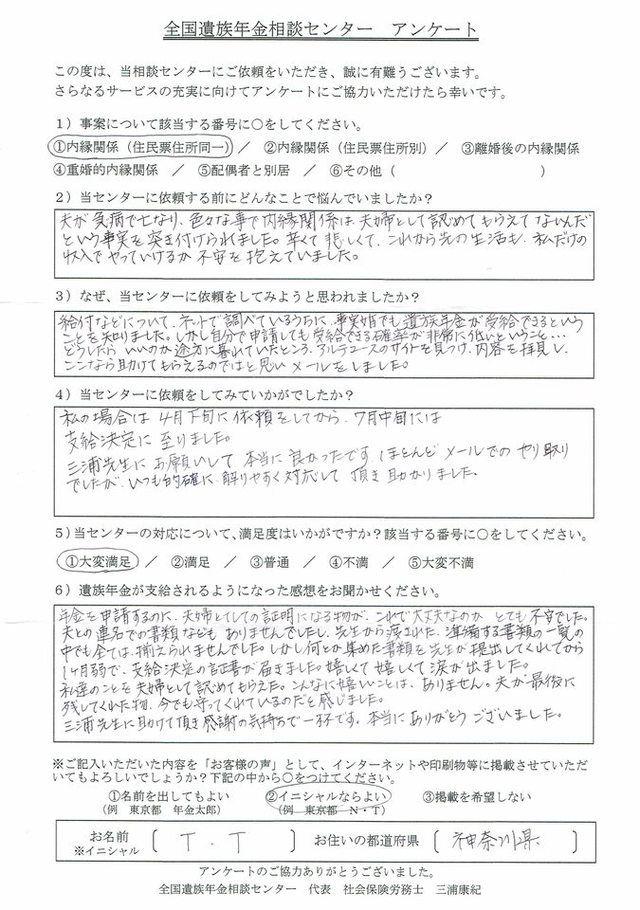 全国遺族年金相談センター　アンケート
この度は、当相談センターにご依頼をいただき、誠に有難うございます。
さらなるサービスの充実に向けてアンケートにご協力いただけたら幸いです。
１）事案について該当する番号に○をしてください。
①内縁関係（住民票住所同一）／　②内縁関係（住民票住所別）／　③離婚後の内縁関係
④重婚的内縁関係　／　⑤配偶者と別居　／　⑥その他（　　　　　　　　）
２）当センターに依頼する前にどんなことで悩んでいましたか？
夫が急病で亡なり、色々な事で内縁関係は、夫婦として認めてもらえてないんだ
という事実を突き付けられました。辛くて悲しくて、これから先の生活も、私だけの
収入でやっていけるか不安を抱えていました。
３）なぜ、当センターに依頼をしてみようと思われましたか？
給付などについて、ネットで調べているうちに、事実婚でも遺族年金が受給できるという
ことを知りました。しかし自分で申請しても受給できる確率が非常に低いということ…
どうしたらいいのか途方に暮れていたところ、アルテユースのサイトを見つけ、内容を拝見し、
ここなら助けてもらえるのではと思いメールをしました。
４）当センターに依頼をしてみていかがでしたか？
私の場合は4月下旬に依頼をしてから、7月中旬には
支給決定に至りました。
三浦先生にお願いして本当に良かったです。ほとんどメールでのやり取り
でしたが、いつも的確に、解りやすく対応して頂き助かりました。
５）当センターの対応について、満足度はいかがですか？該当する番号に○をしてください。
①大変満足　／　②満足　／　③普通　／　④不満　／　⑤大変不満
６）遺族年金が支給されるようになった感想をお聞かせください。
年金を申請するのに、夫婦としての証明になる物が、これで大丈夫なのか とても不安でした。
夫との連名での書類などもありませんでしたし、先生から渡された、準備する書類の一覧の
中でも全ては、揃えられませんでした。しかし何とか集めた書類を先生が提出してくれてから
1ヶ月弱で、支給決定の証書が届きました。嬉しくて嬉しくて涙が出ました。
私達のことを夫婦として認めてもらえた。こんなに嬉しいことは、ありません。夫が最後に
残してくれた物、今でも守ってくれているのだと感じました。
三浦先生に助けて頂き感謝の気持ちで一杯です。本当にありがとうございました。
※ご記入いただいた内容を「お客様の声」として、インターネットや印刷物等に掲載させていただ
いてもよろしいでしょうか？下記の中から○をつけてください。
①名前を出してもよい　②イニシャルならよい　③掲載を希望しない
（例　東京都　年金太郎）　（例　東京都　N・T）
お名前　〔　T．T　〕　お住いの都道府県　〔　神奈川県　〕
※イニシャル
アンケートのご協力ありがとうございました。
全国遺族年金相談センター　代表　社会保険労務士　三浦康紀